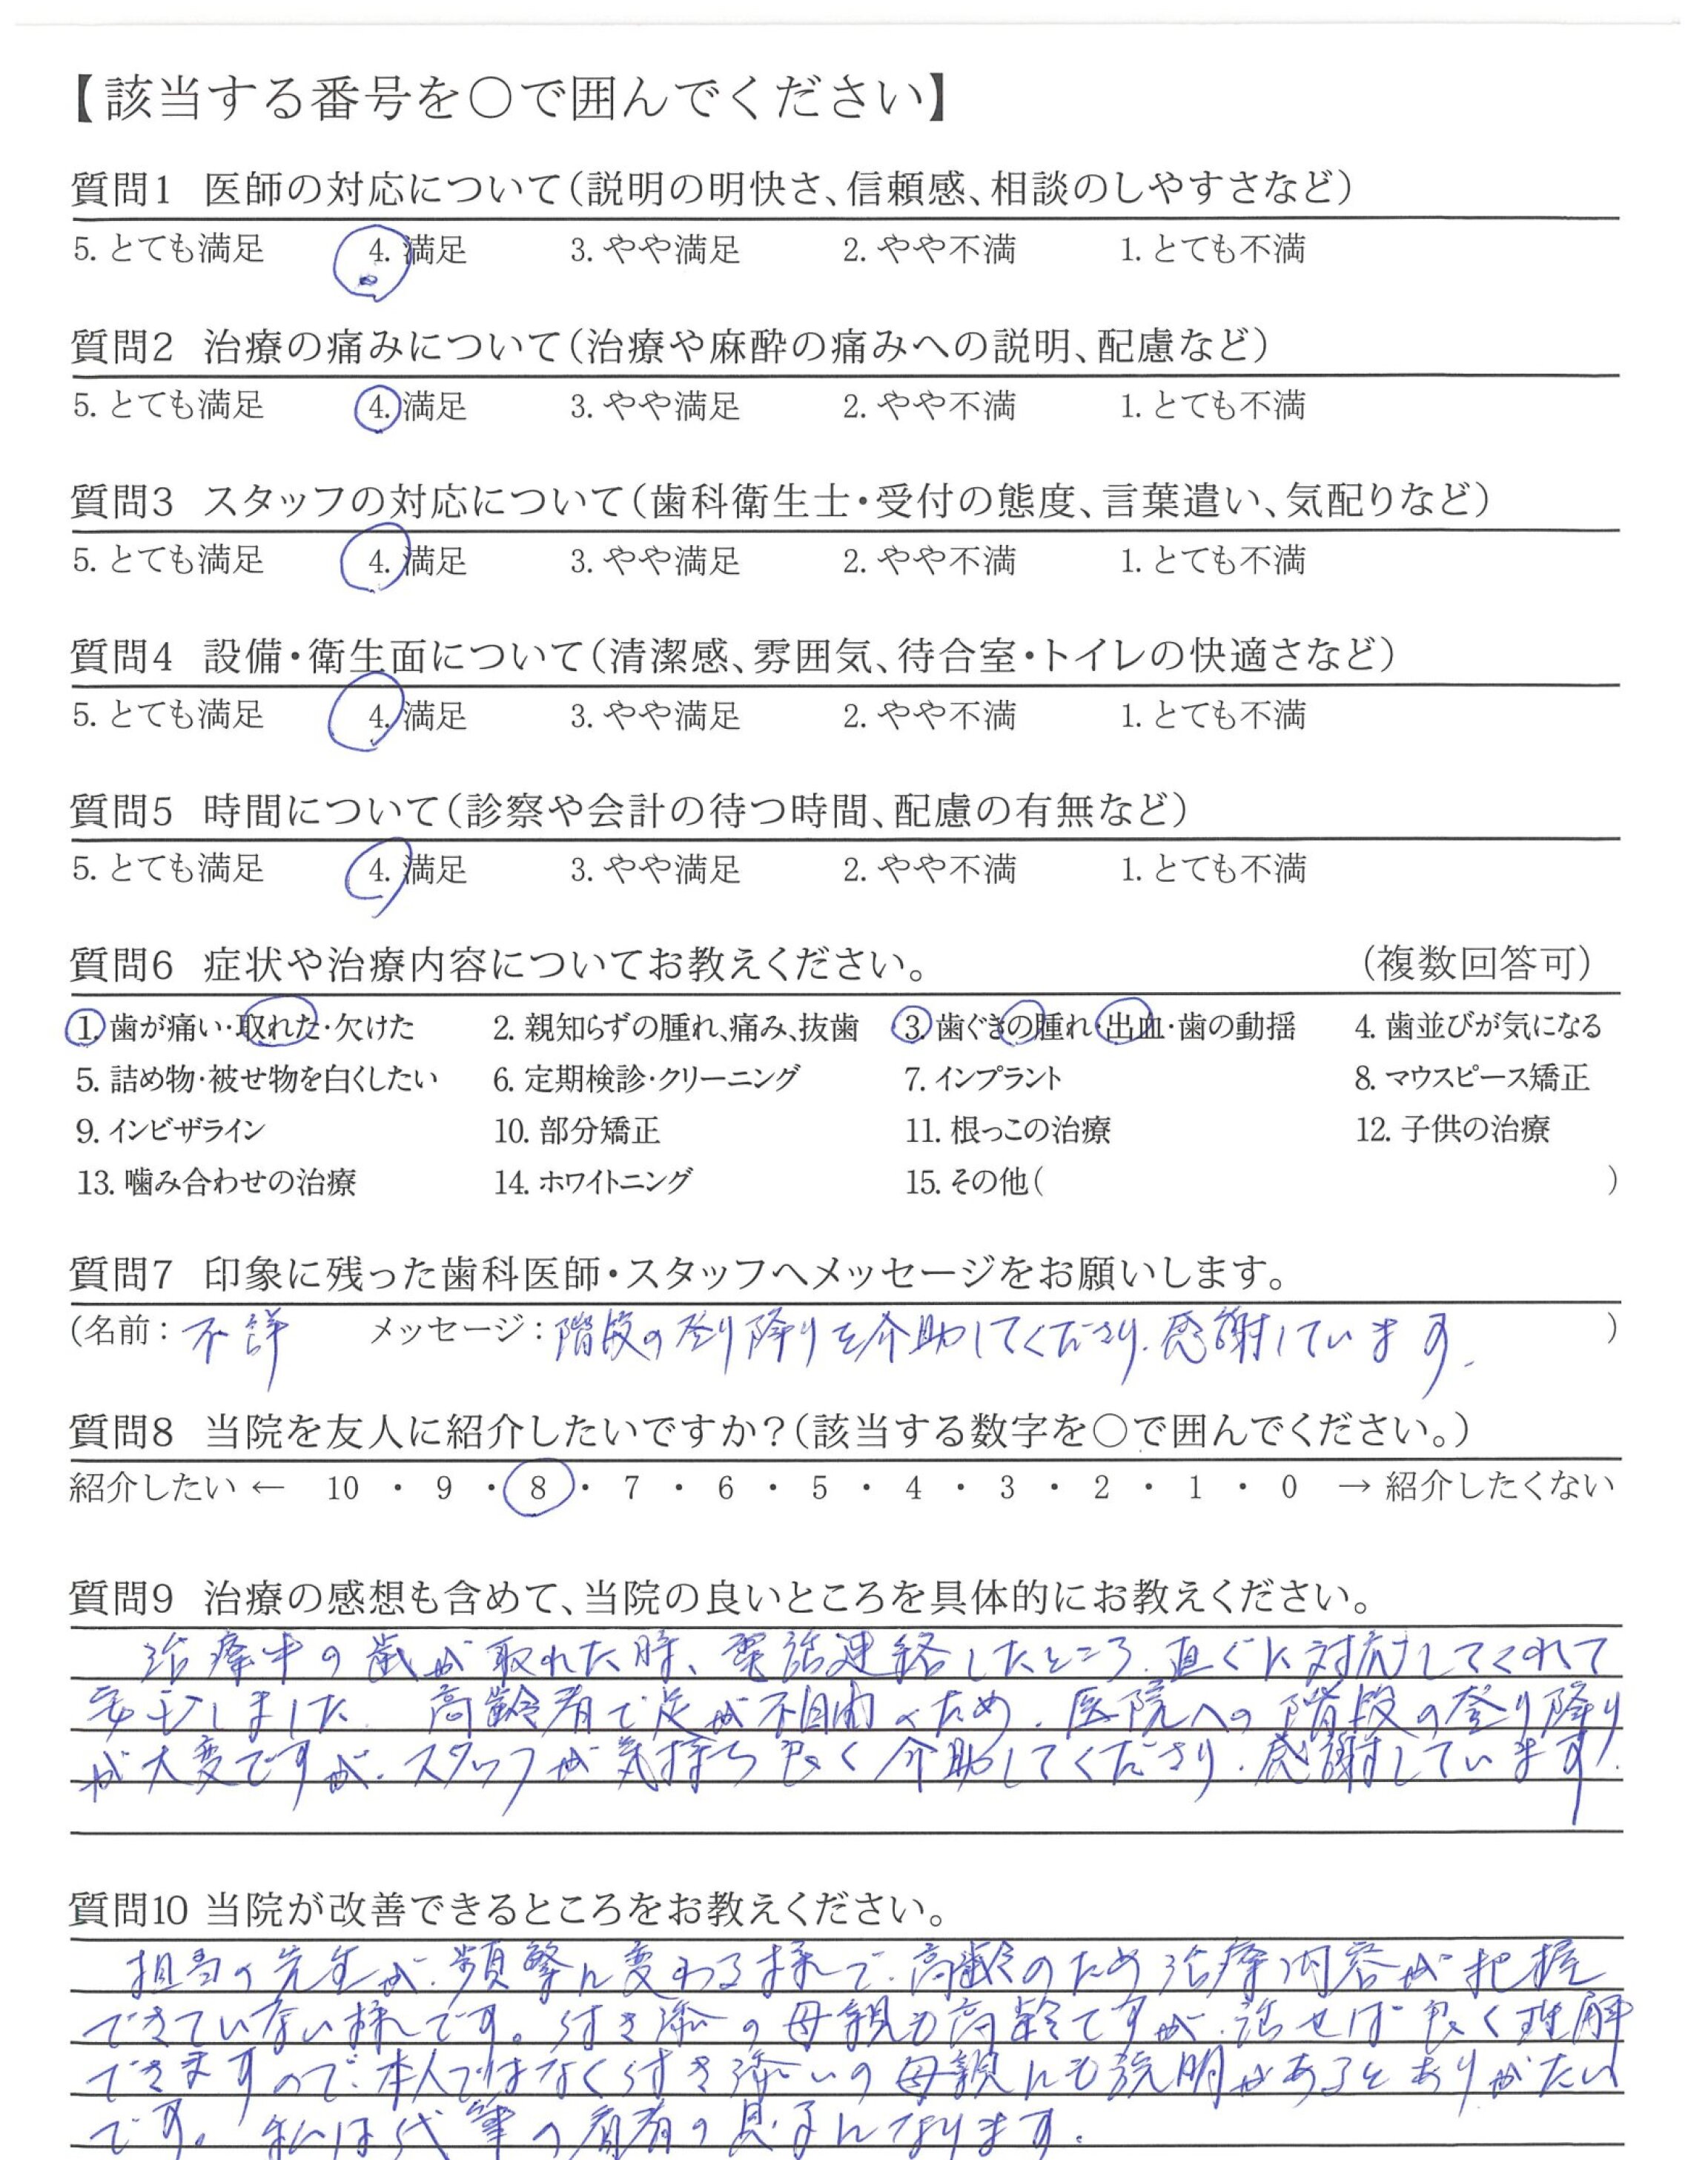 【該当する番号を〇で囲んでください】
質問1 医師の対応について(説明の明快さ、信頼感、相談のしやすさなど)
5. とても満足 4. 満足 3. やや満足 2. やや不満 1. とても不満
質問2 治療の痛みについて(治療や麻酔の痛みへの説明、配慮など)
5. とても満足 4. 満足 3. やや満足 2. やや不満 1. とても不満
質問3 スタッフの対応について(歯科衛生士・受付の態度、言葉遣い、気配りなど)
5. とても満足 4. 満足 3. やや満足 2. やや不満 1. とても不満
質問4 設備・衛生面について(清潔感、雰囲気、待合室・トイレの快適さなど)
5. とても満足 4. 満足 3. やや満足 2. やや不満 1. とても不満
質問5 時間について(診察や会計の待つ時間、配慮の有無など)
5. とても満足 4. 満足 3. やや満足 2. やや不満 1. とても不満
質問6 症状や治療内容についてお教えください。 (複数回答可)
1. 歯が痛い・取れた・欠けた 2. 親知らずの腫れ、痛み、抜歯 3. 歯ぐきの腫れ・出血・歯の動揺 4. 歯並びが気になる
5. 詰め物・被せ物を白くしたい 6. 定期検診・クリーニング 7. インプラント 8. マウスピース矯正
9. インビザライン 10. 部分矯正 11. 根っこの治療 12. 子供の治療
13. 噛み合わせの治療 14. ホワイトニング 15. その他( )
質問7 印象に残った歯科医師・スタッフへメッセージをお願いします。
(名前：不詳 メッセージ：階段の登り降りを介助してくださり、感謝しています。)
質問8 当院を友人に紹介したいですか？(該当する数字を〇で囲んでください。)
紹介したい ← 10 ・ 9 ・ 8 ・ 7 ・ 6 ・ 5 ・ 4 ・ 3 ・ 2 ・ 1 ・ 0 → 紹介したくない
質問9 治療の感想も含めて、当院の良いところを具体的にお教えください。
治療中の歯が取れた時、電話連絡したところ、直ぐに対応してくれて
安心しました。高齢者で足が不自由のため、医院への階段の登り降り
が大変ですが、スタッフが気持ち良く介助してくださり、感謝しています。
質問10 当院が改善できるところをお教えください。
担当の先生が、頻繁に変わる様で、高齢のため治療内容が把握
できていない様です。付き添いの母親も高齢ですが、話せば良く理解
できますので、本人ではなく付き添いの母親にも説明があるとありがたい
です。私は代筆の患者の息子になります。